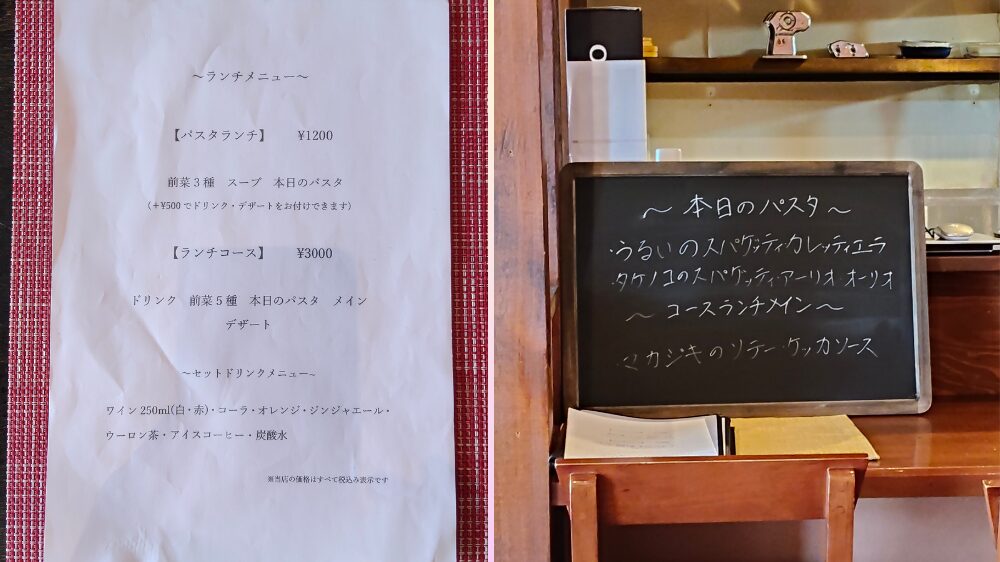 ～ランチメニュー～
【パスタランチ】 ¥1200
前菜3種 スープ 本日のパスタ
（＋¥500でドリンク・デザートをお付けできます）
【ランチコース】 ¥3000
ドリンク 前菜5種 本日のパスタ メイン
デザート
～セットドリンクメニュー~
ワイン250ml(白・赤)・コーラ・オレンジ・ジンジャエール・
ウーロン茶・アイスコーヒー・炭酸水
※当店の価格はすべて税込み表示です
～ 本日のパスタ ～
・うるいのスパゲッティ・カレッティエラ
・タケノコのスパゲッティ・アーリオ オーリオ
～ コースランチメイン ～
・マカジキのソテー・ケッカソース